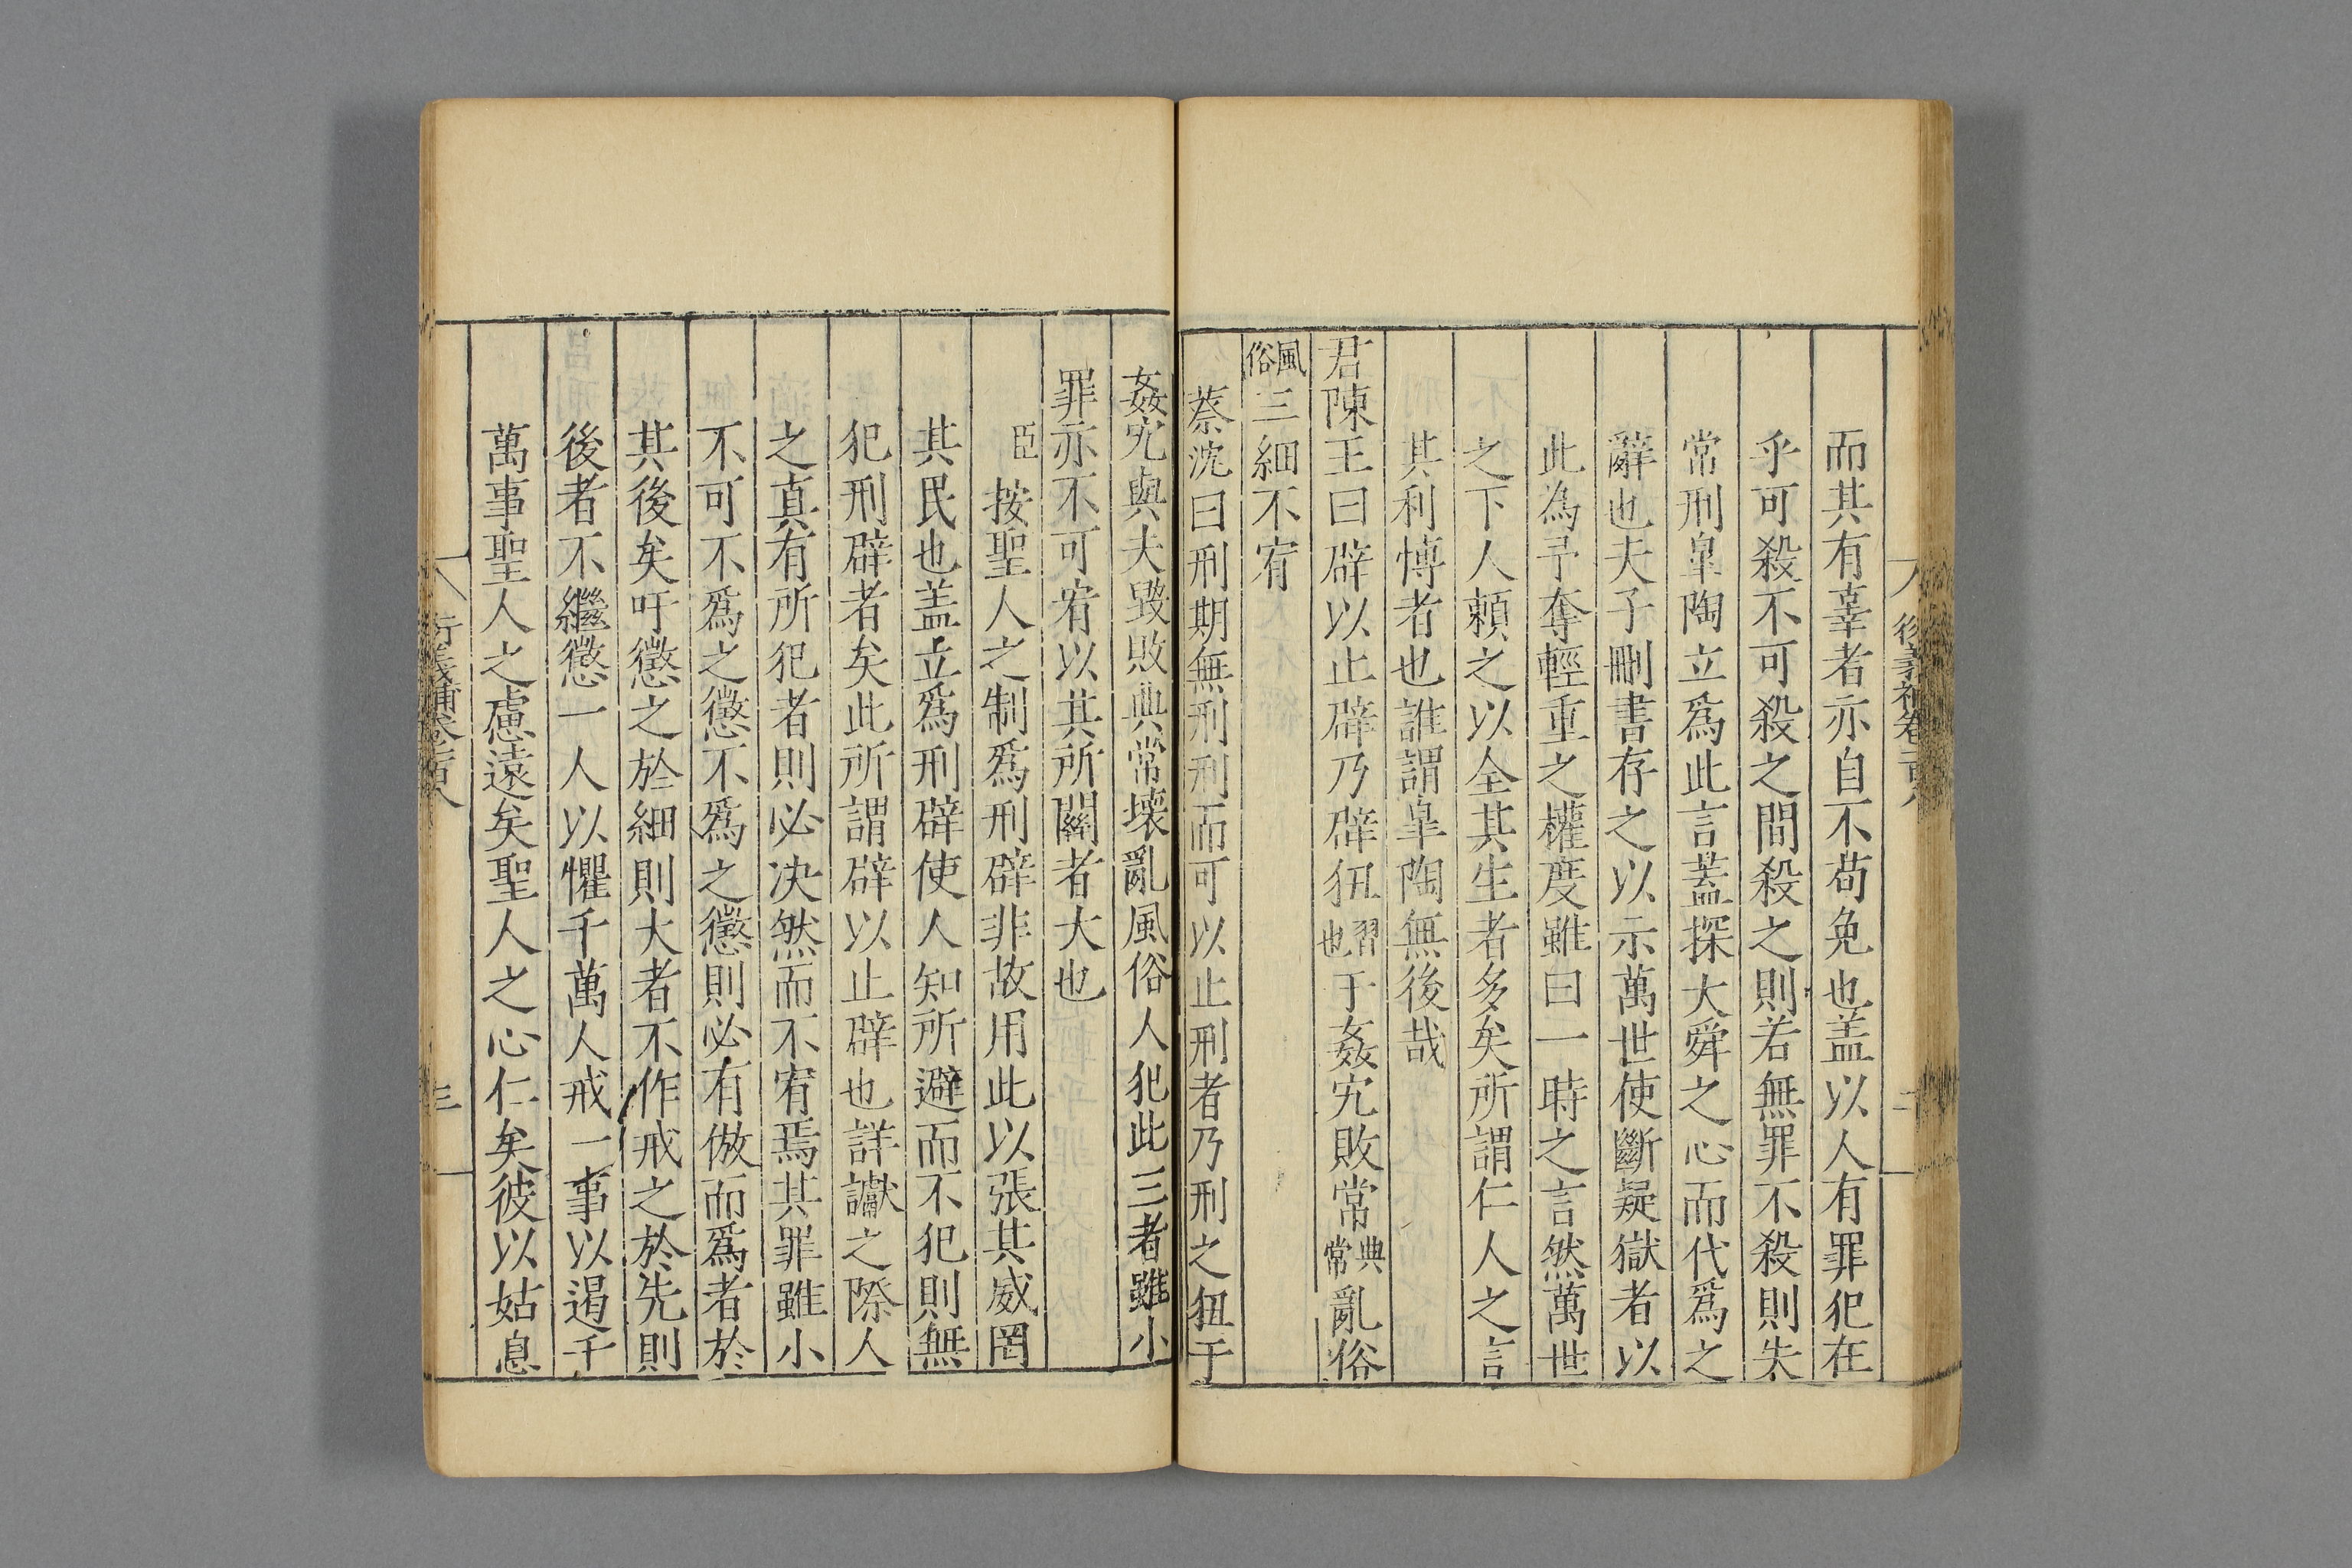 而其有辜者亦自不苟免也盖以人有罪犯在
乎可殺不可殺之間殺之則若無罪不殺則失
常刑皐陶立爲此言蓋探大舜之心而代爲之
辭也夫子刪書存之以示萬世使斷疑獄者以
此為予奪輕重之權度雖曰一時之言然萬世
之下人賴之以全其生者多矣所謂仁人之言
其利愽者也誰謂皐陶無後哉
君陳王曰辟以止辟乃辟狃習也于姦宄敗常典常亂俗
風俗三細不宥
蔡沈曰刑期無刑刑而可以止刑者乃刑之狃于
姦宄與夫毀敗典常壊亂風俗人犯此三者雖小
罪亦不可宥以其所關者大也
臣按聖人之制爲刑辟非故用此以張其威罔
其民也盖立爲刑辟使人知所避而不犯則無
犯刑辟者矣此所謂辟以止辟也詳讞之際人
之真有所犯者則必决然而不宥焉其罪雖小
不可不爲之懲不爲之懲則必有倣而爲者於
其後矣吁懲之於細則大者不作戒之於先則
後者不繼懲一人以懼千萬人戒一事以遏千
萬事聖人之慮遠矣聖人之心仁矣彼以姑息